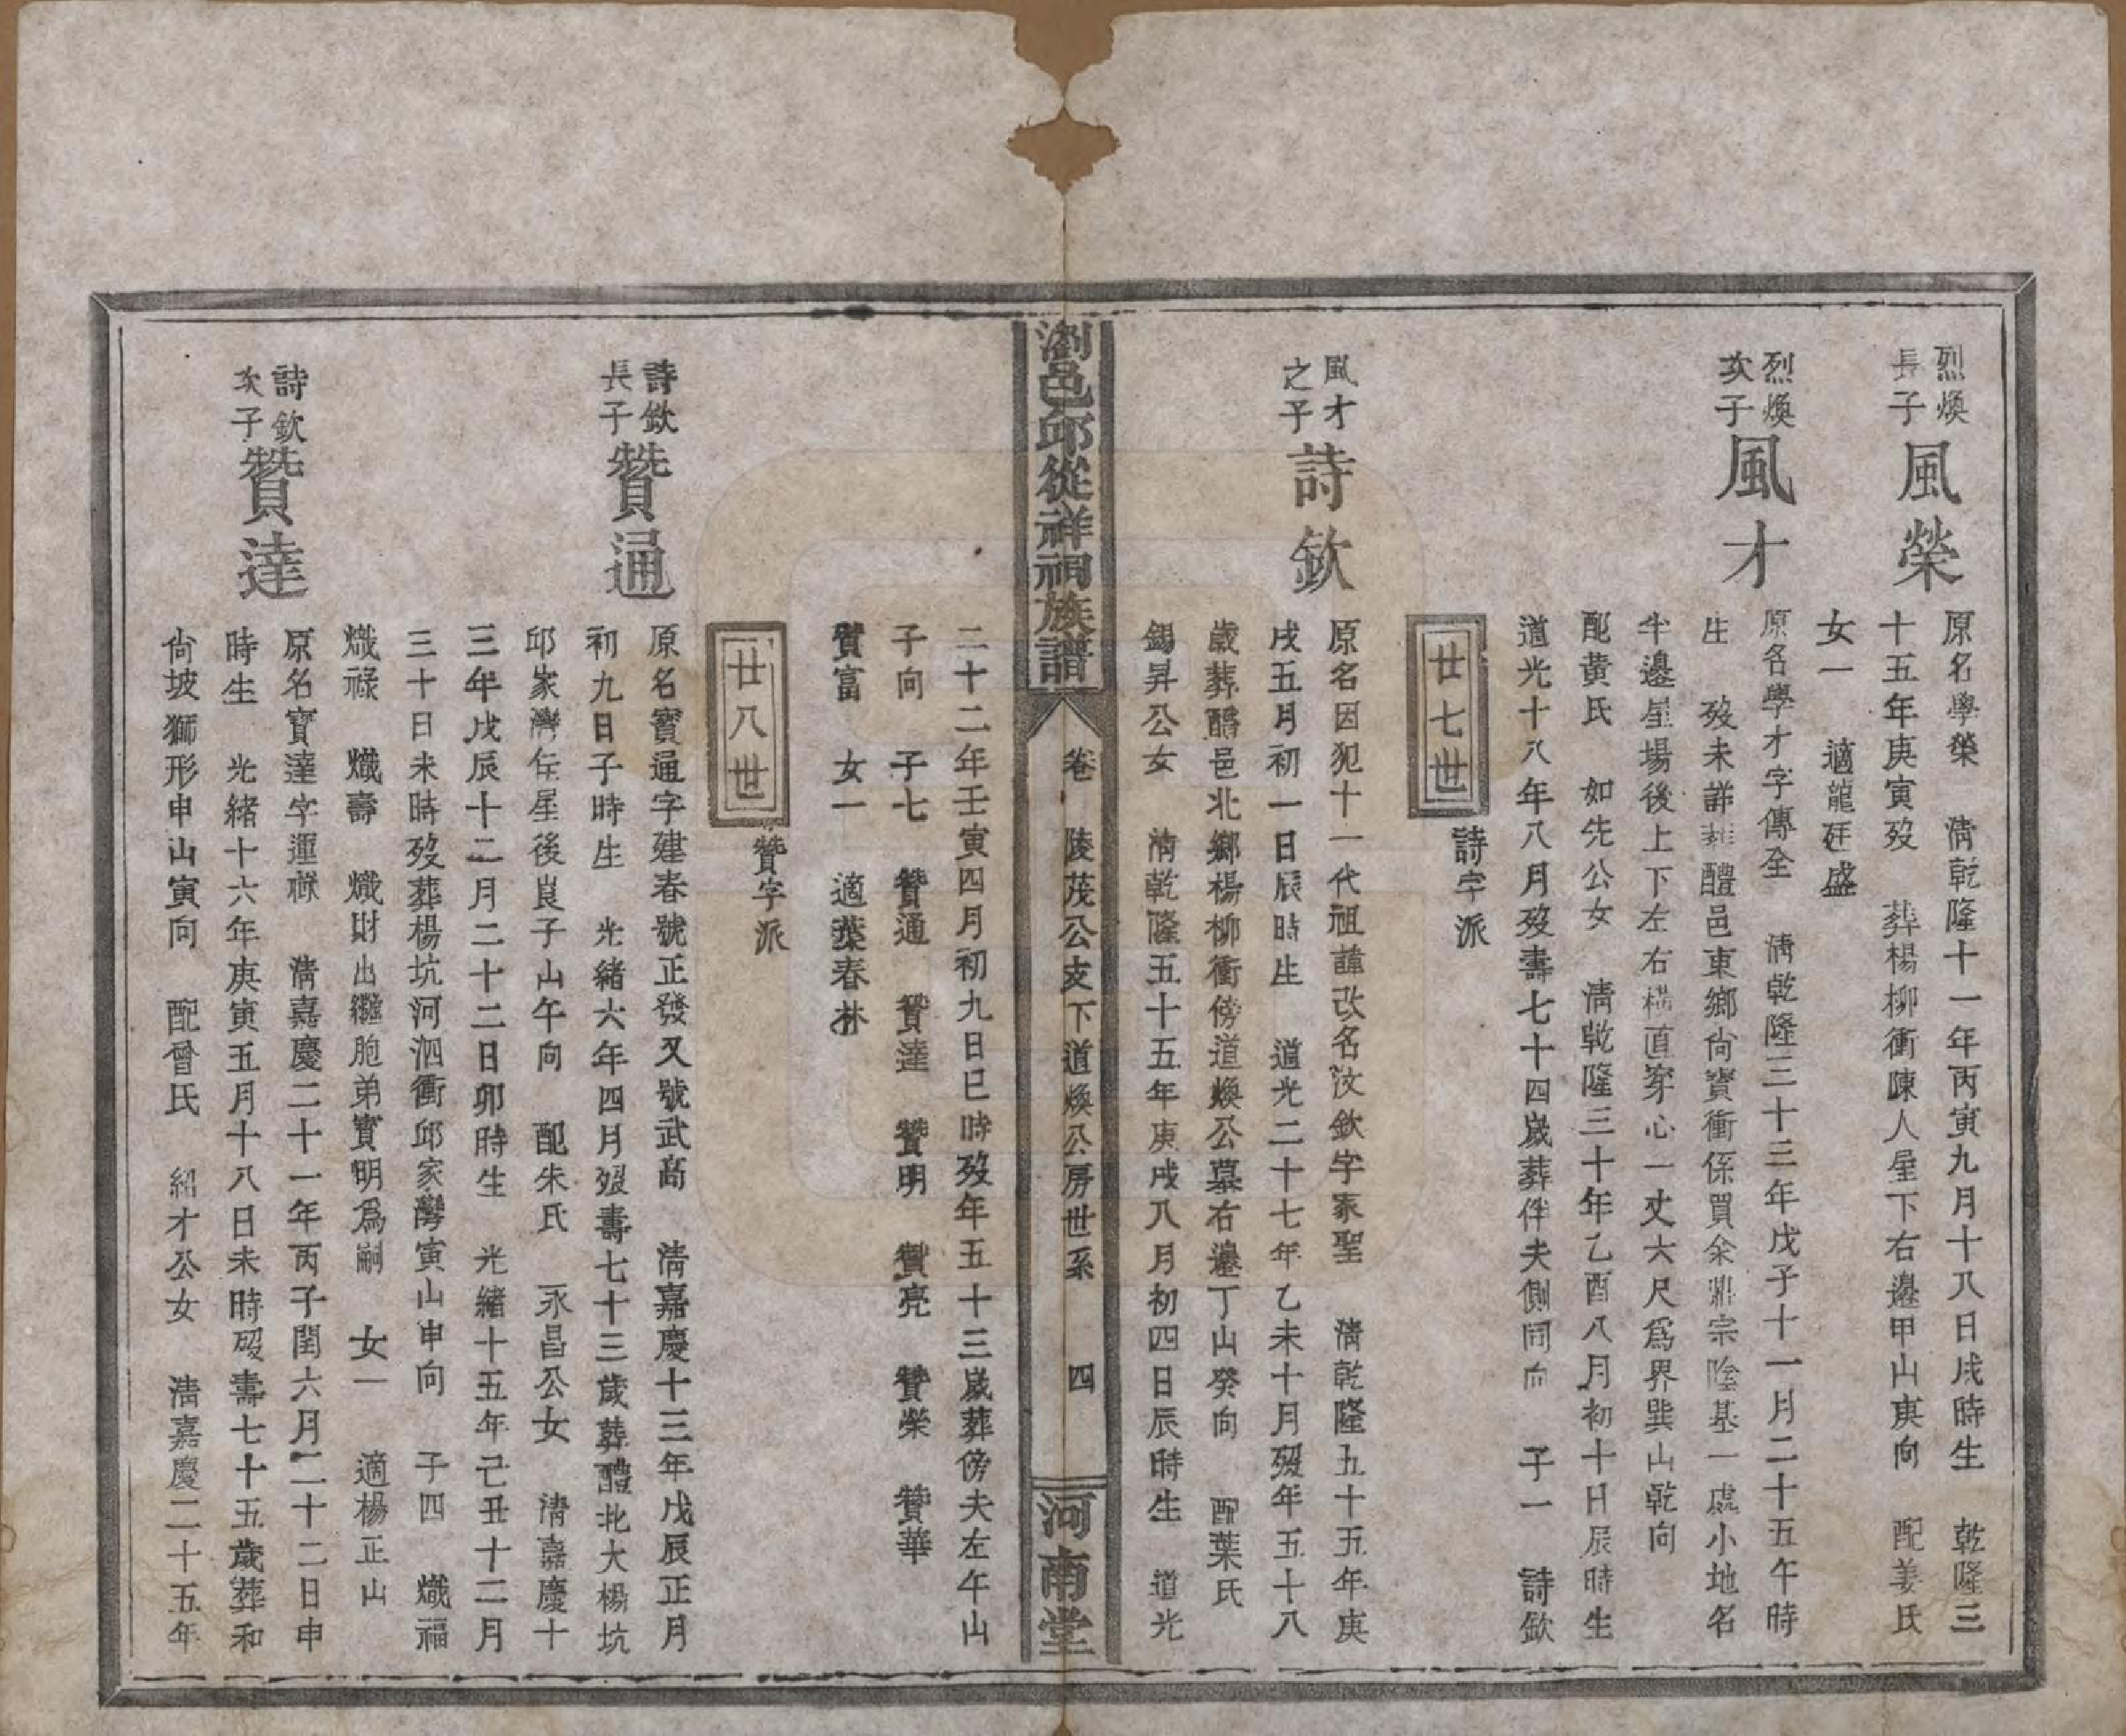 烈煥長子
風榮
原名學榮　清乾隆十一年丙寅九月十八日戌時生　乾隆三
十五年庚寅歿　葬楊柳衝陳人屋下右邊甲山庚向　配姜氏
女一　適龍廷盛
烈煥次子
風才
原名學才字傳全　清乾隆三十三年戊子十一月二十五午時
生　歿未詳葬醴邑東鄉尙寶衝係買余鼎宗陰基一處小地名
牛邊星場後上下左右橫直穿心一丈六尺爲界巽山乾向
配黃氏　如先公女　清乾隆三十年乙酉八月初十日辰時生
道光十八年八月歿壽七十四歲葬伴夫側同向　子一　詩欽
廿七世
詩字派
風才之子
詩欽
原名因犯十一代祖諱改名汝欽字家聖　清乾隆五十五年庚
戌五月初一日辰時生　道光二十七年乙未十月歿年五十八
歲葬醴邑北鄉楊柳衝傍道煥公墓右邊丁山癸向　配葉氏
錫昇公女　清乾隆五十五年庚戌八月初四日辰時生　道光
瀏邑邱從祥祠族譜
卷　陵茂公支下道煥公房世系　四
河南堂
二十二年壬寅四月初九日巳時歿年五十三歲葬傍夫左午山
子向　子七　贊通　贊達　贊明　贊亮　贊榮　贊華
贊富　女一　適葉春林
廿八世
贊字派
詩欽長子
贊通
原名寶通字建春號正發又號武高　清嘉慶十三年戊辰正月
初九日子時生　光緒六年四月歿壽七十三歲葬醴北大楊坑
邱家灣住屋後艮子山午向　配朱氏　永昌公女　清嘉慶十
三年戊辰十二月二十二日卯時生　光緒十五年己丑十二月
三十日未時歿葬楊坑河泗衝邱家灣寅山申向　子四　熾福
熾祿　熾壽　熾財出繼胞弟寶明爲嗣　女一　適楊正山
詩欽次子
贊達
原名寶達字運祿　清嘉慶二十一年丙子閏六月二十二日申
時生　光緒十六年庚寅五月十八日未時歿壽七十五歲葬和
尙坡獅形申山寅向　配曾氏　紹才公女　清嘉慶二十五年